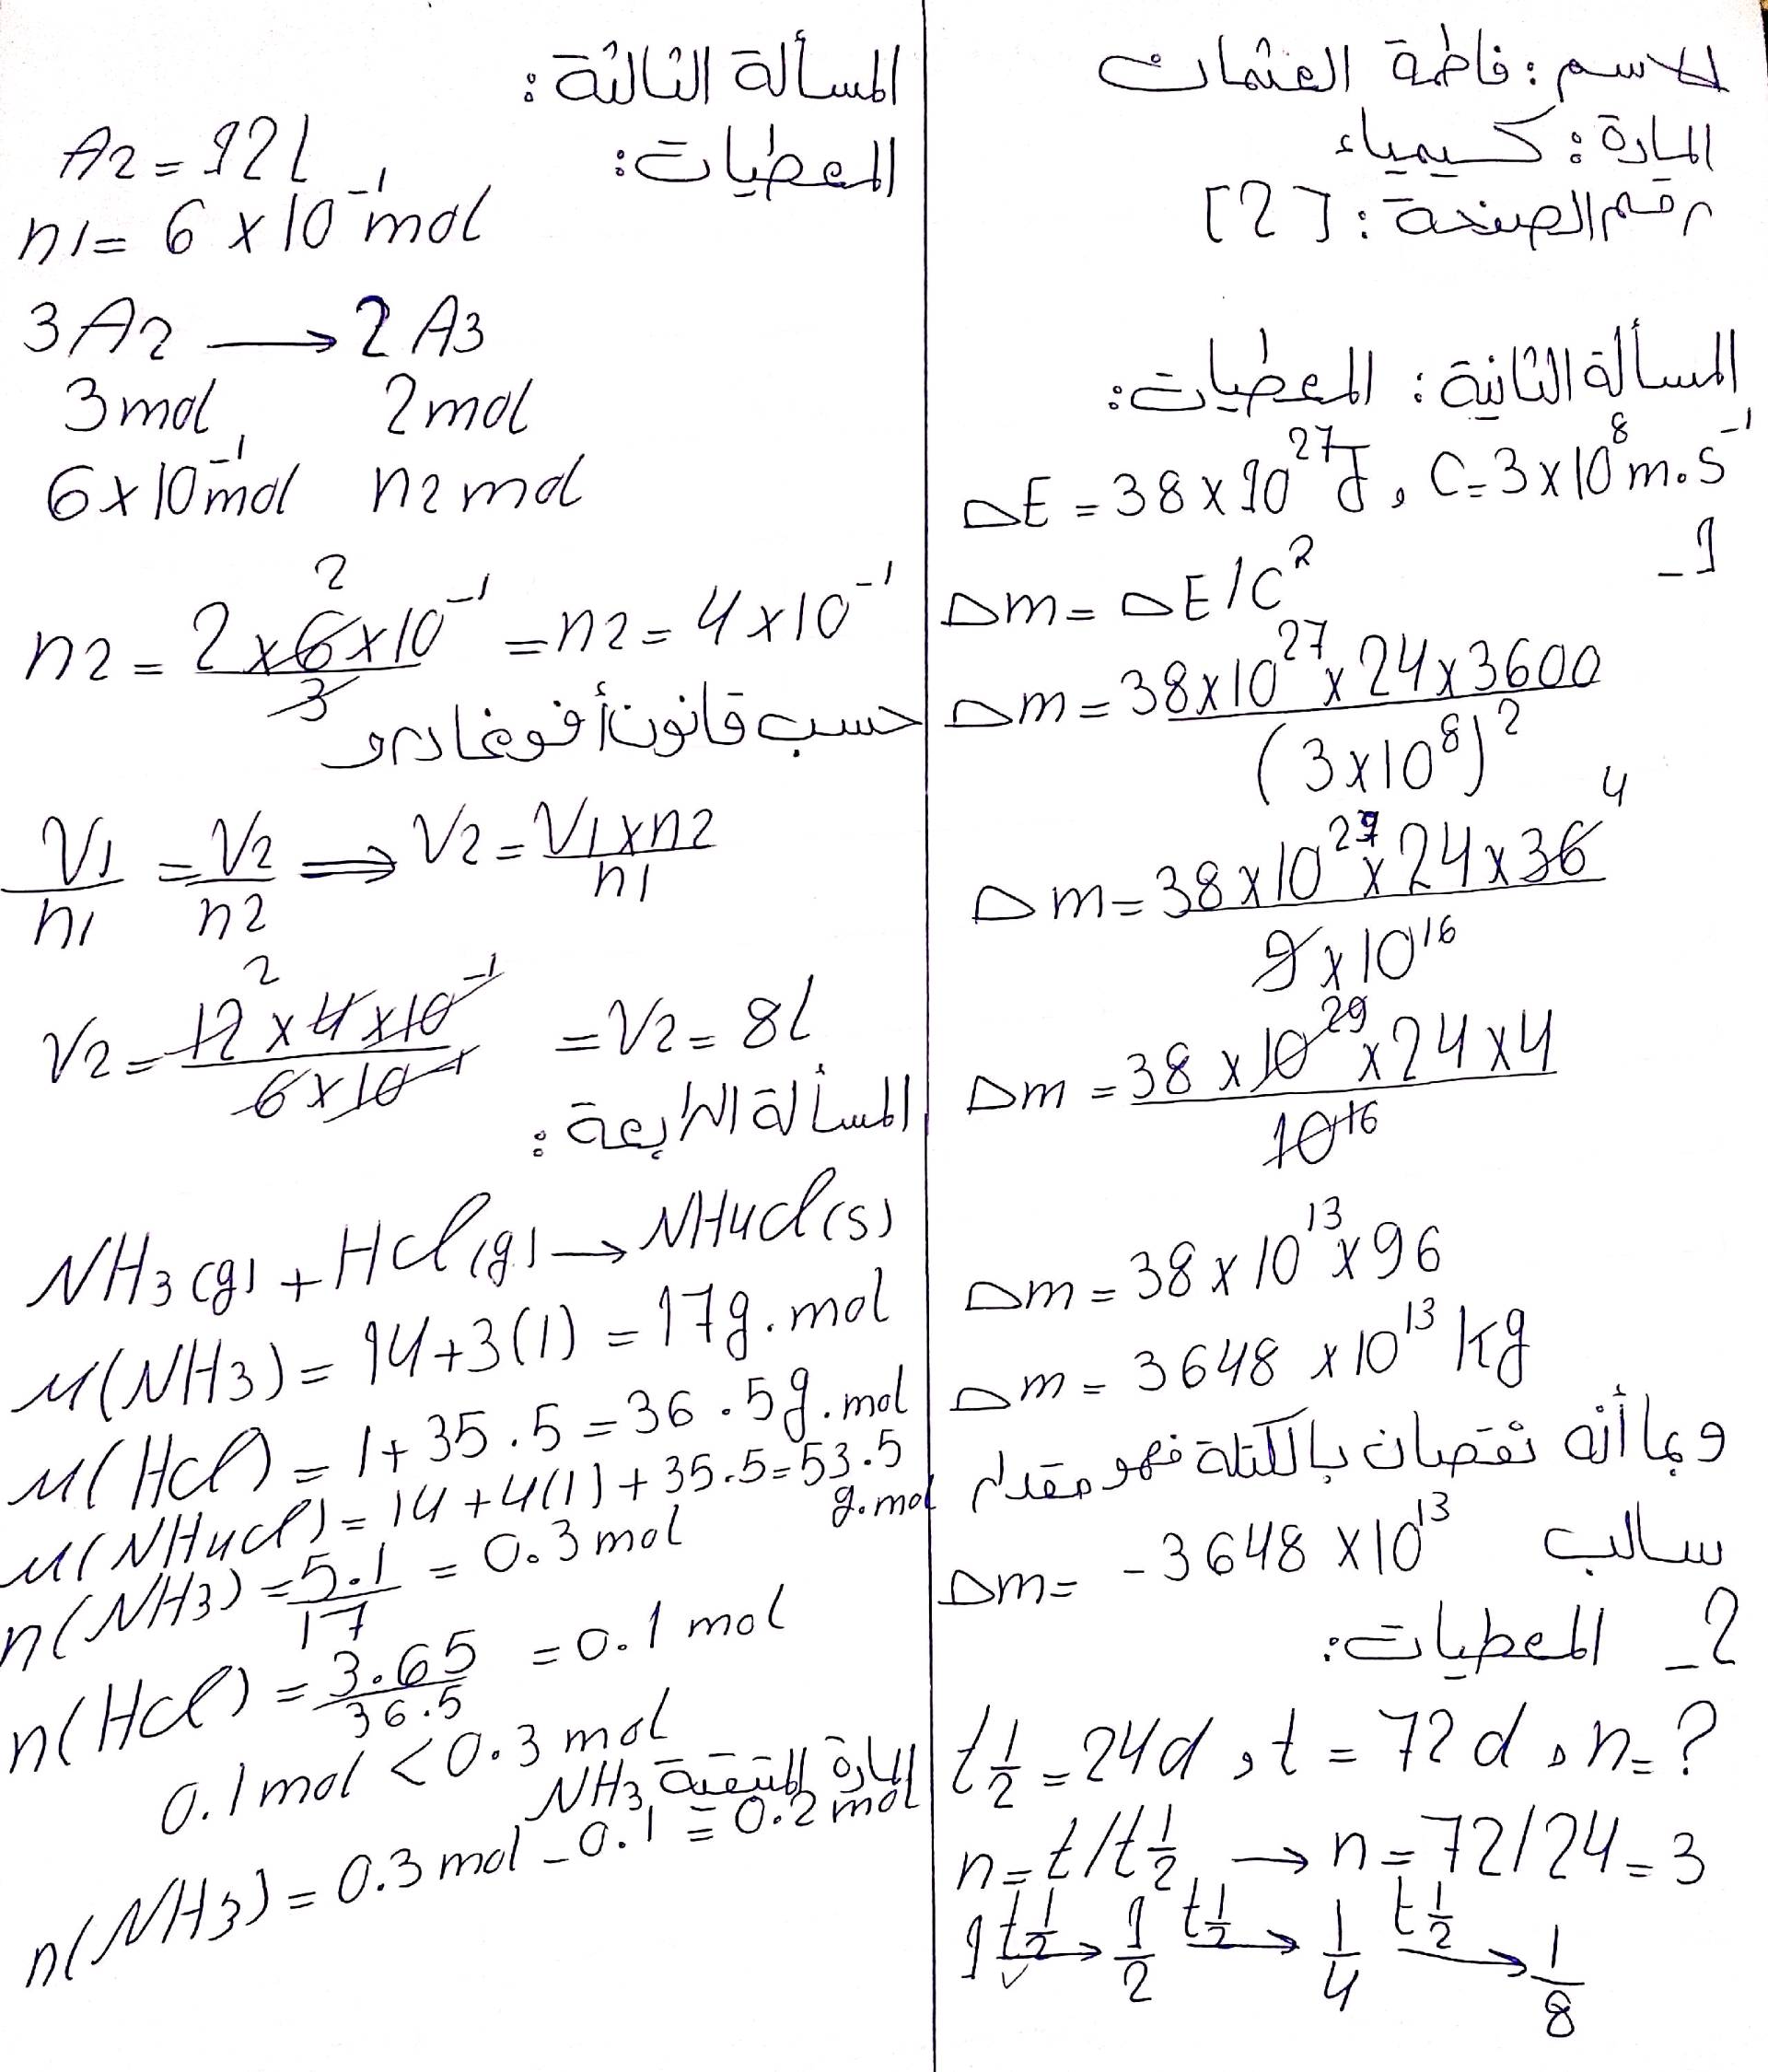 الاسم: فاطمة العثمان
المادة: كيمياء
رقم الصفحة: [2]
المسألة الثانية: المعطيات:
ΔE = 38 x 10^27 J , C = 3 x 10^8 m.s^-1
1_
Δm = ΔE / C^2
Δm = 38 x 10^27 x 24 x 3600 / (3 x 10^8)^2
4
Δm = 38 x 10^29 x 24 x 36 / 9 x 10^16
Δm = 38 x 10^29 x 24 x 4 / 10^16
Δm = 38 x 10^13 x 96
Δm = 3648 x 10^13 kg
وبما أنه نقصان بالكتلة فهو مقدار
سالب Δm = -3648 x 10^13
2_ المعطيات:
t 1/2 = 24d , t = 72 d , n = ?
n = t / t 1/2 → n = 72 / 24 = 3
1 t 1/2 → 1/2 t 1/2 → 1/4 t 1/2 → 1/8
المسألة الثالثة:
المعطيات: A2 = 12 l
n1 = 6 x 10^-1 mol
3 A2 → 2 A3
3 mol 2 mol
6 x 10^-1 mol n2 mol
2
n2 = 2 x 6 x 10^-1 / 3 = n2 = 4 x 10^-1
حسب قانون أفوغادرو
V1 / n1 = V2 / n2 ⟹ V2 = V1 x n2 / n1
2
V2 = 12 x 4 x 10^-1 / 6 x 10^-1 = V2 = 8 l
المسألة الرابعة:
NH3 (g) + HCl (g) → NH4Cl (s)
M(NH3) = 14 + 3(1) = 17 g.mol
M(HCl) = 1 + 35.5 = 36.5 g.mol
M(NH4Cl) = 14 + 4(1) + 35.5 = 53.5 g.mol
n(NH3) = 5.1 / 17 = 0.3 mol
n(HCl) = 3.65 / 36.5 = 0.1 mol
0.1 mol < 0.3 mol
المادة المتبقية NH3
n(NH3) = 0.3 mol - 0.1 = 0.2 mol